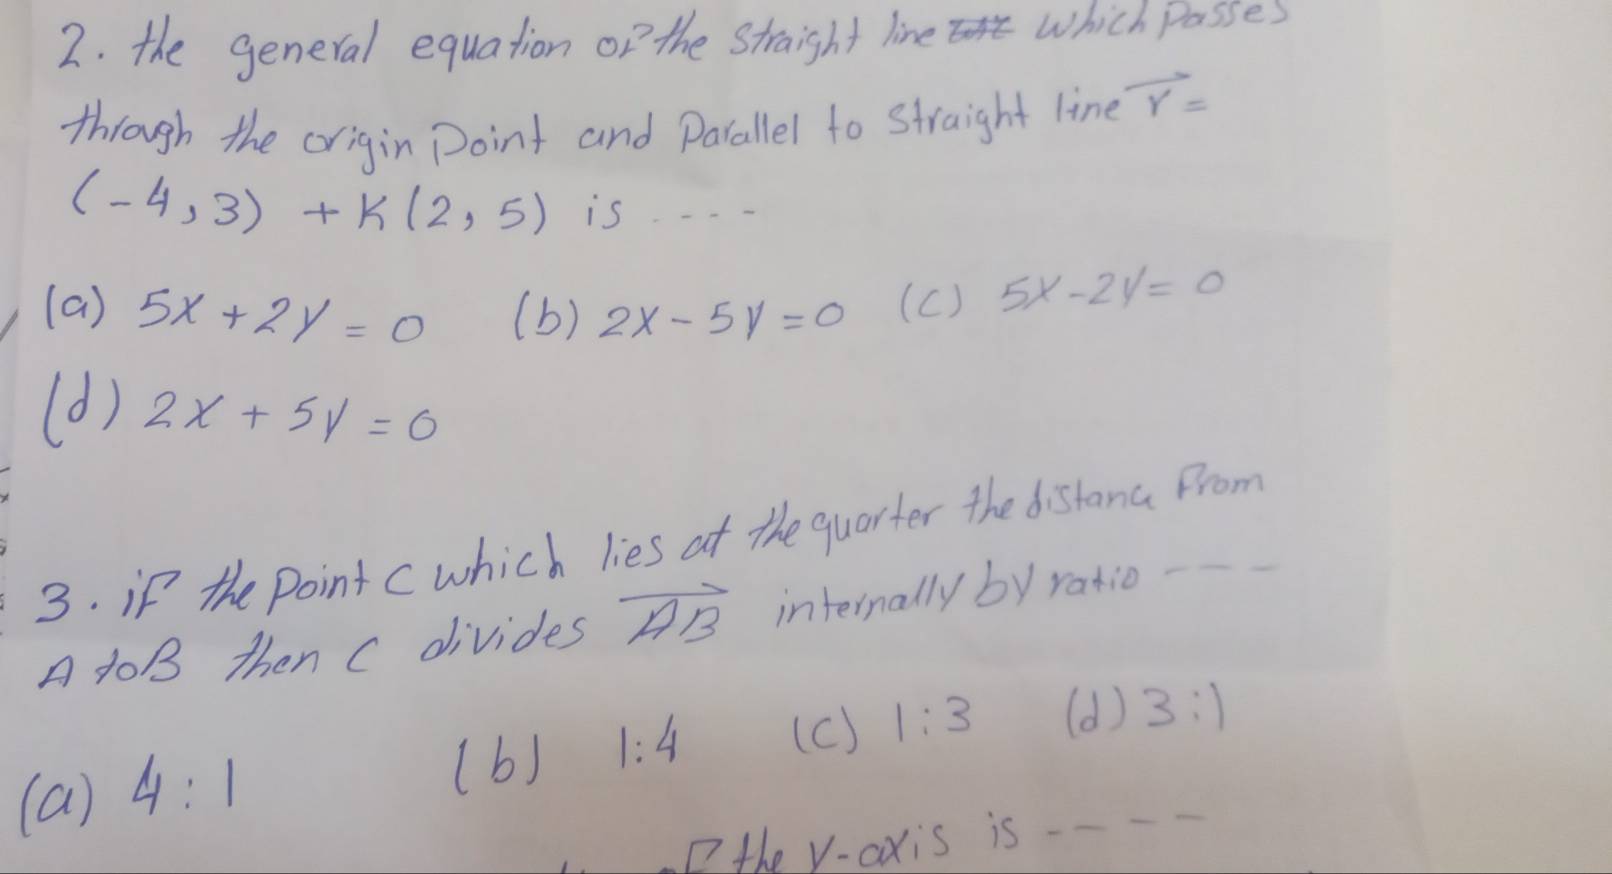 2. the general equation of the straight line which passes
through the origin Point and Parallel to straight line r =
(-4,3) + K(2,5) is ....
(a) 5x + 2y = 0 (b) 2x - 5y = 0 (c) 5x - 2y = 0
(d) 2x + 5y = 0
3. if the Point C which lies at the quarter the distance from
A to B then C divides AB internally by ratio ----
(a) 4:1 (b) 1:4 (c) 1:3 (d) 3:1
of the y-axis is ----